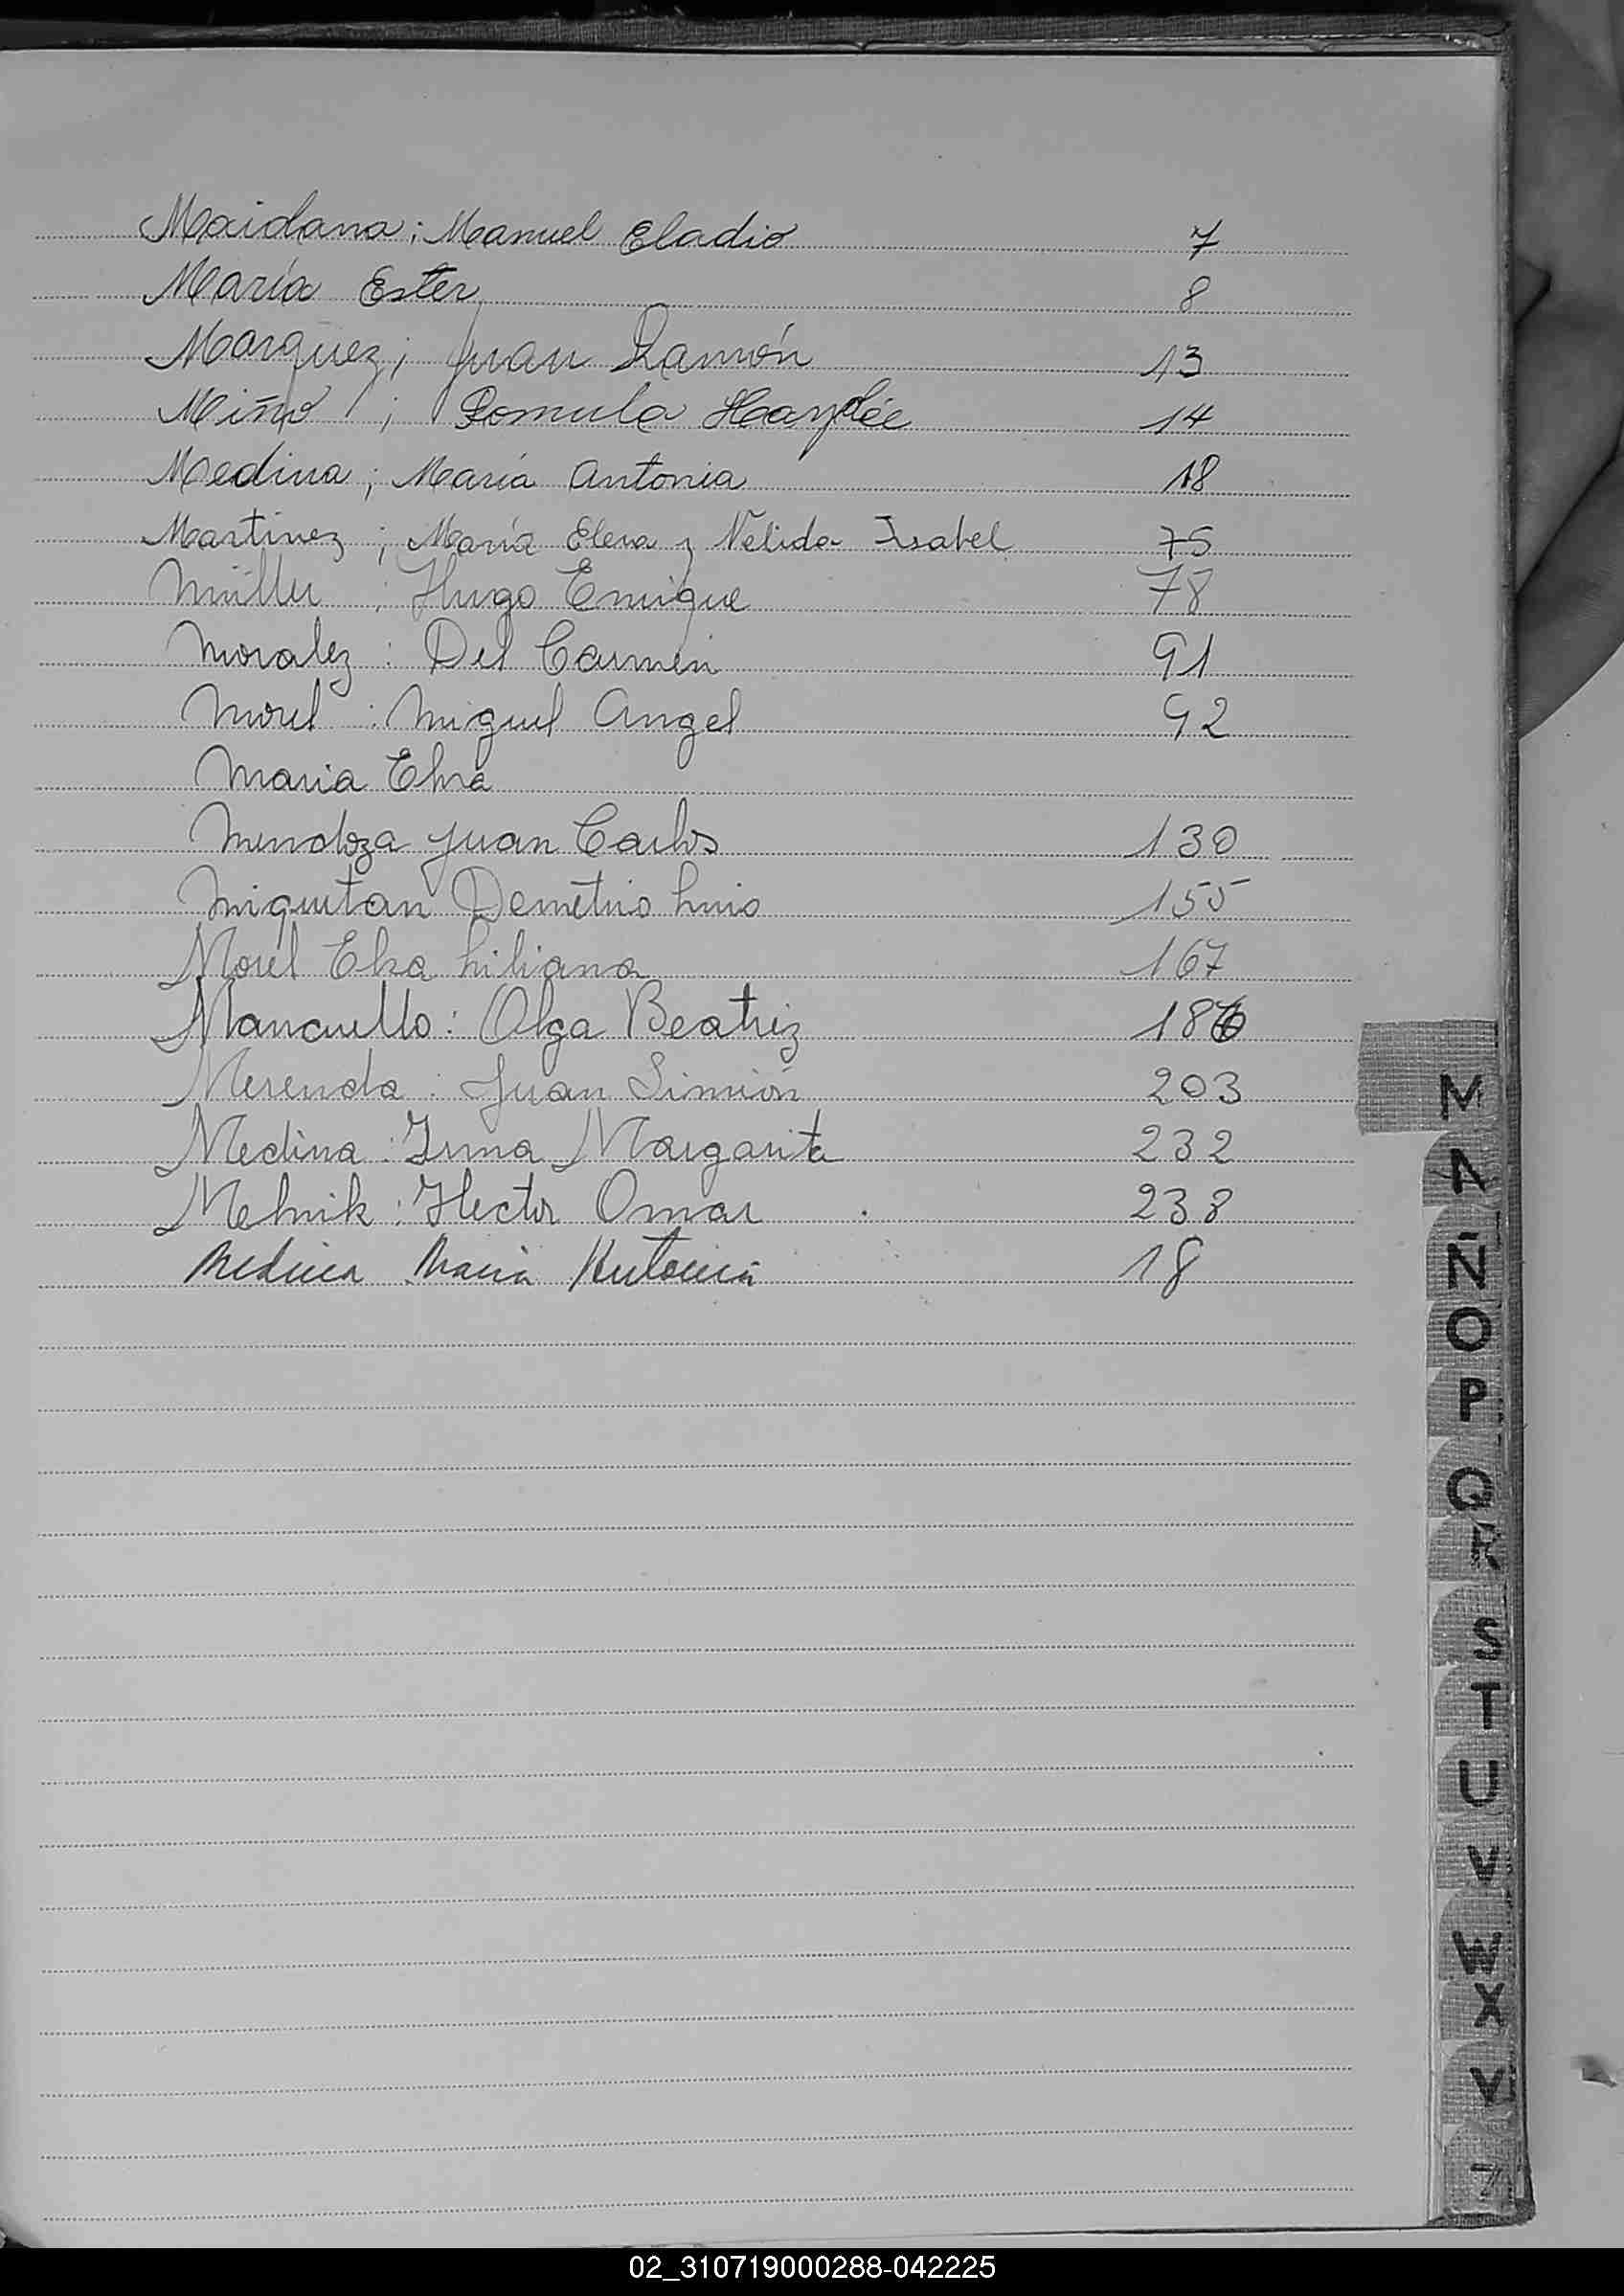 Maidana; Manuel Eladio 7
María Ester 8
Marquez; Juan Ramón 13
Miño ; Romula Haydée 14
Medina; María Antonia 18
Martinez ; María Elena y Nélida Isabel 75
Müller : Hugo Enrique 78
Moralez : Del Carmen 91
Morel : Miguel Angel 92
Maria Elva
Mendoza Juan Carlos 130
Miquetan Demetrio Luis 155
Morel Elsa Liliana 167
Mancuello: Olga Beatriz 186
Merenda : Juan Simión 203
Medina : Irma Margarita 232
Melnik : Hector Omar 238
Medina Maria Antonia 18
M
N
Ñ
O
P
Q
R
S
T
U
V
W
X
Y
Z
02_310719000288-042225